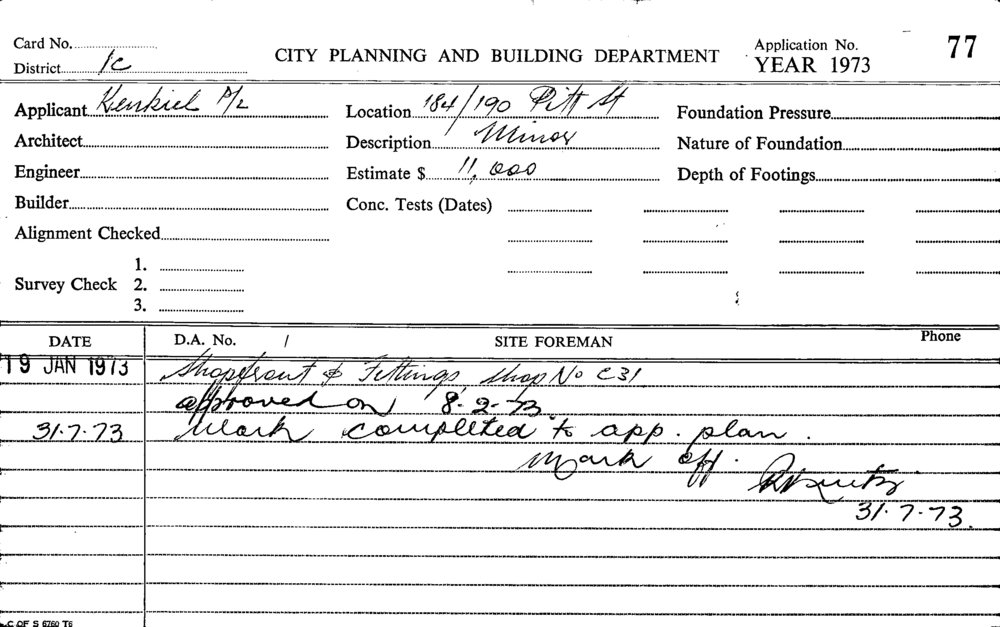 Card No.
District 1c
CITY PLANNING AND BUILDING DEPARTMENT
Application No. 77
YEAR 1973
Applicant Kenkiel P/L
Location 184/190 Pitt St
Foundation Pressure
Architect
Description Minor
Nature of Foundation
Engineer
Estimate $ 11,000
Depth of Footings
Builder
Conc. Tests (Dates)
Alignment Checked
Survey Check 1.
2.
3.
DATE D.A. No. / SITE FOREMAN Phone
19 JAN 1973 Shopfront & Fittings, Shop No C31
approved on 8.2.73.
31.7.73 Work completed to app. plan.
Mark off.
31.7.73.
C OF S 6760 T6